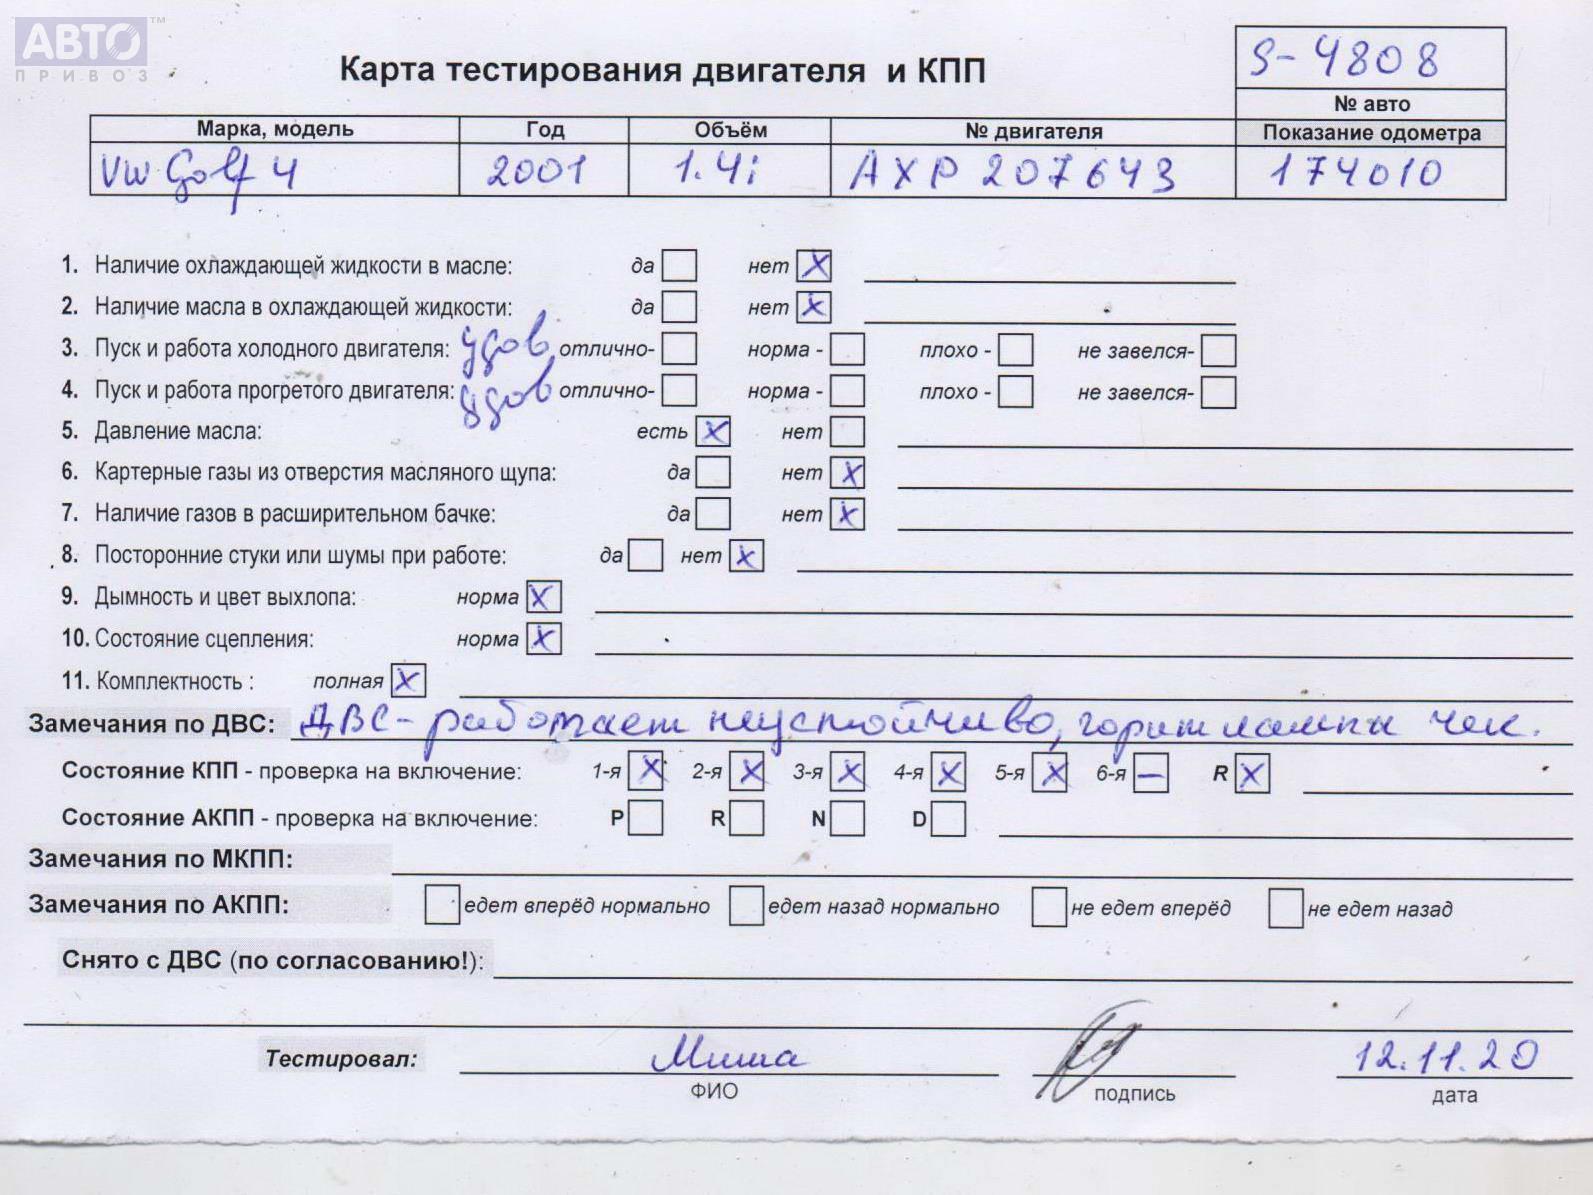 АВТО™
ПРИВОЗ
Карта тестирования двигателя и КПП
S-4808
№ авто
Марка, модель Год Объём № двигателя Показание одометра
VW Golf 4 2001 1.4i AXP 207643 174010
1. Наличие охлаждающей жидкости в масле: да нет X
2. Наличие масла в охлаждающей жидкости: да нет X
3. Пуск и работа холодного двигателя: удов отлично- норма - плохо - не завелся-
4. Пуск и работа прогретого двигателя: удов отлично- норма - плохо - не завелся-
5. Давление масла: есть X нет
6. Картерные газы из отверстия масляного щупа: да нет X
7. Наличие газов в расширительном бачке: да нет X
8. Посторонние стуки или шумы при работе: да нет X
9. Дымность и цвет выхлопа: норма X
10. Состояние сцепления: норма X
11. Комплектность : полная X
Замечания по ДВС: ДВС - работает неустойчиво, горит лампы чек.
Состояние КПП - проверка на включение: 1-я X 2-я X 3-я X 4-я X 5-я X 6-я — R X
Состояние АКПП - проверка на включение: P R N D
Замечания по МКПП:
Замечания по АКПП: едет вперёд нормально едет назад нормально не едет вперёд не едет назад
Снято с ДВС (по согласованию!):
Тестировал: Миша 12.11.20
ФИО подпись дата